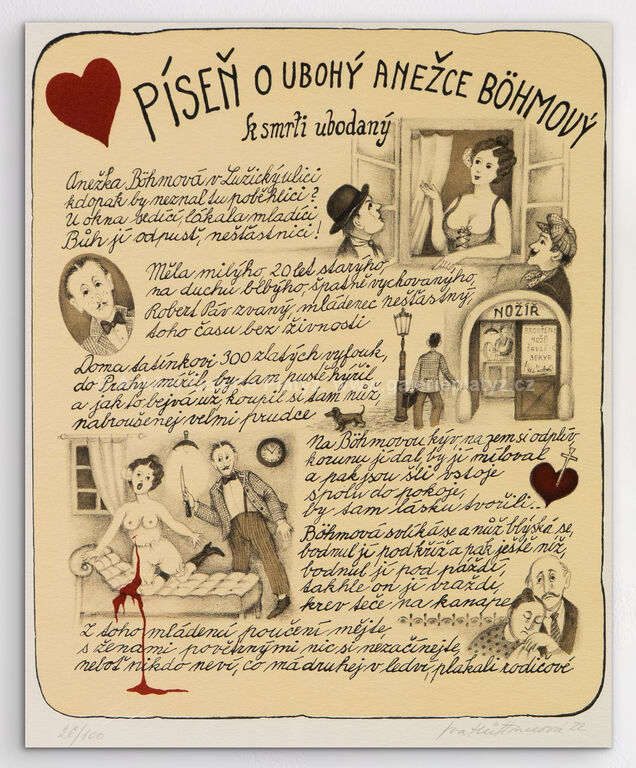 PÍSEŇ O UBOHÝ ANEŽCE BÖHMOVÝ
k smrti ubodaný
Anežka Böhmová v Lužický ulici
kdopak by neznal tu poběhlici?
U okna sedíc, lákala mladíci
Bůh jí odpusť, nešťastnici!
Měla milýho, 20 let starýho,
na duchu blbýho, špatně vychovanýho,
Robert Páv zvaný, mládenec nešťastný,
toho času bez živnosti
NOŽÍŘ
BROUŠENÍ
NOŽŮ
ŠAVLÍ
SEKYR
Doma tatínkovi 300 zlatých vyfouk,
do Prahy mířil, by tam pustě hýřil
a jak to bejvá už, koupil si tam nůž,
nabroušenej velmi prudce
www.galerieplatyz.cz
Na Böhmovou kýv, na zem si odpliv,
korunu jí dal, by jí miloval
a pak jsou šli vstoje
spolu do pokoje,
by tam lásku tvořili..
Böhmová svlíká se a nůž blýská se,
bodnul jí pod kříž a pak ještě níž,
bodnul jí pod páždí
takhle on jí vraždí
krev teče na kanape
Z toho mládenci poučení mějte,
s ženami povětrnými nic si nezačínejte,
neboť nikdo neví, co má druhej v ledví, plakali rodičové
26/100
Iva Hüttnerová 22